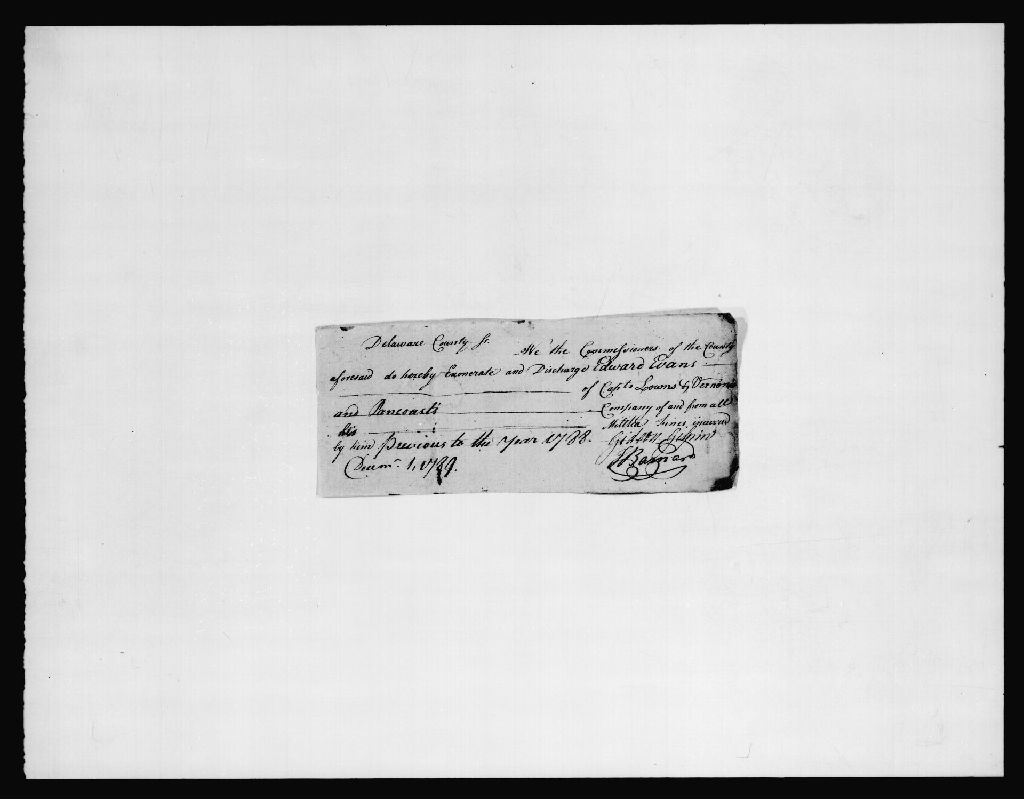 Delaware County ss.
We the Commissioners of the County
aforesaid do hereby Exonerate and Discharge Edward Evans
of Capts Lowns & Vernons
and Pancoasts Company of and from all
his Militia fines incurred
by him Previous to the Year 1788. Gideon Gilpin
Decemr. 1, 1789. J Barnard